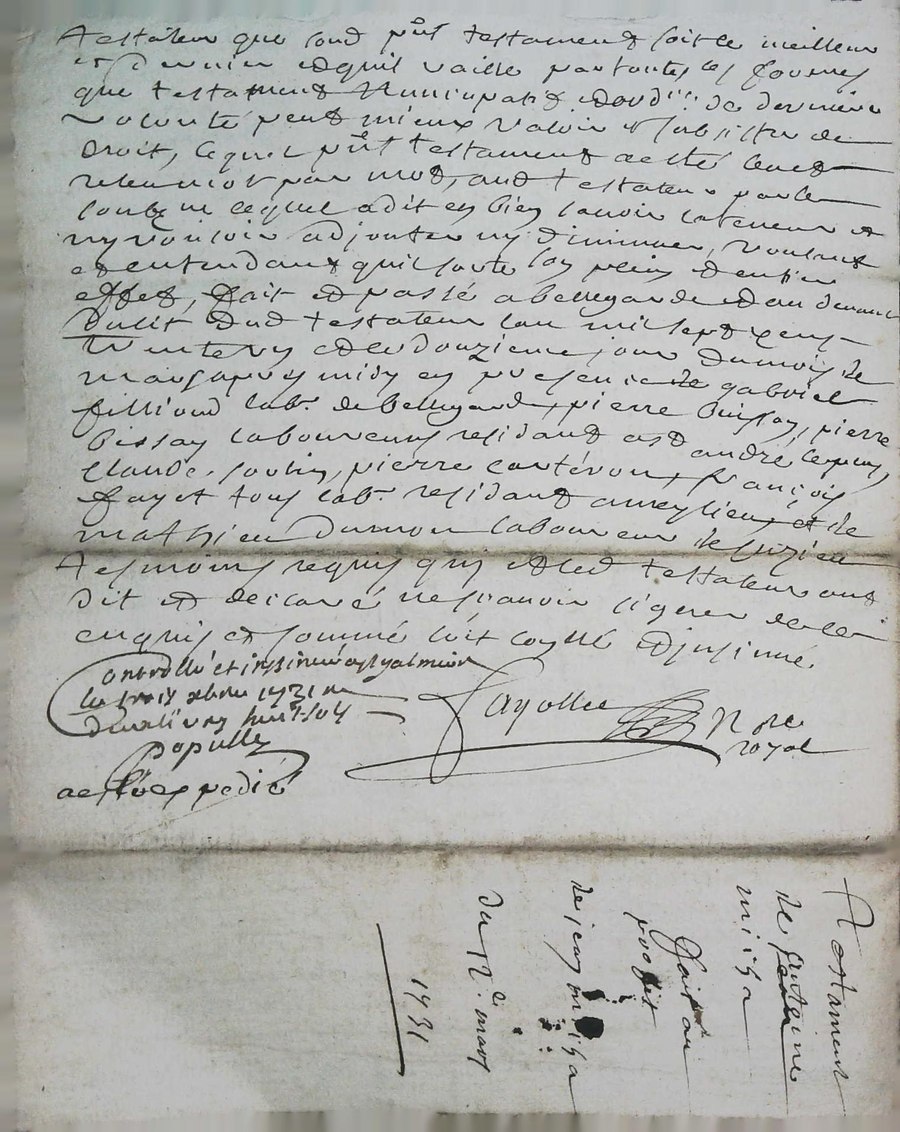 testateur que son d prest testament soit le meilleur
et dernier et quil vaille par toutes les formes
que testament Nuncupatif et ord.re de derniere
volonté peut mieux valoir et subsister de
droit, lequel prest testament a esté leu et
releu mot par mot, aud testateur parle
soubz.ne lequel a dit et bien savoir la teneur et
ny vouloir adjouter ny diminuer, voulant
et entendant quil sorte son plein et entier
effet, fait et passé a bellegarde et au devant
du lit dud testateur lan mil sept cens
trente un et le douzieme jour du mois de
mars apres midy en presence de gabriel
filliond lab.r de bellegarde, pierre buisson, pierre
bissay laboureurs residant et andré
claude. , pierre cartéron, françois
fayet tous lab.r residant a meylieu et de
mathieu dumon laboureur de suzieu
tesmoins requis qui et led testateur ont
dit et declaré ne scavoir signer de ce
enquis et sommé soit et insinué.
controllé et insinué a st galmier
les trois 1731
popullé
a esté expedié
fayolle Nore
royal
Testament
de antoine
miiha
fait au
proffit
de jean miiha
du 12.e mars
1731